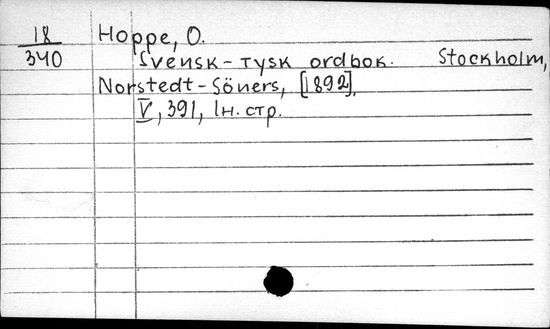 18
340
Hoppe, O.
Svensk-tysk ordbok. Stockholm,
Norstedt-Söners, [1892].
V, 391, 1 н. стр.